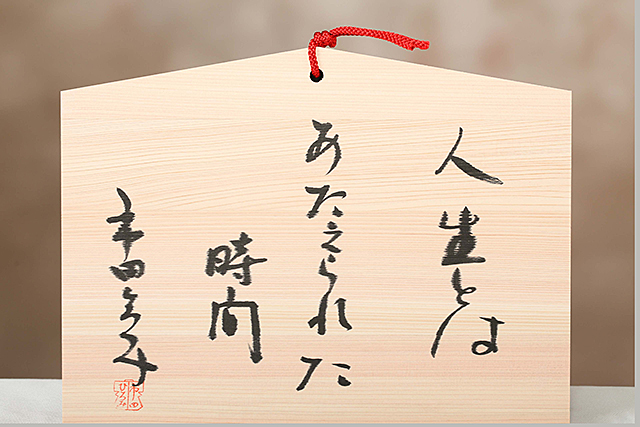 人生とは
あたえられた
時間